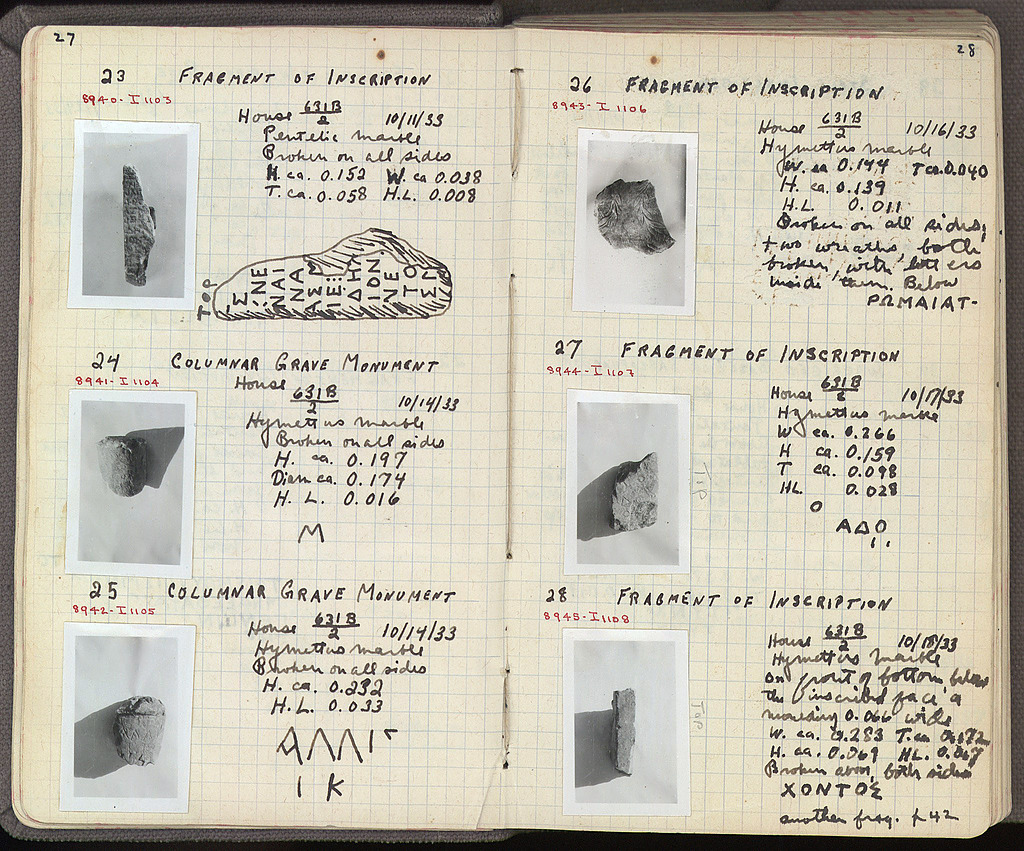 27
23 FRAGMENT OF INSCRIPTION
8940-I 1103
House 631B/2 10/11/33
Pentelic marble
Broken on all sides
H. ca. 0.152 W. ca 0.038
T. ca. 0.058 H.L. 0.008
TOP
24 COLUMNAR GRAVE MONUMENT
8941-I 1104
House
631B/2 10/14/33
Hymettus marble
Broken on all sides
H. ca. 0.197
Diam ca. 0.174
H. L. 0.016
M
25 COLUMNAR GRAVE MONUMENT
8942-I 1105
House 631B/2 10/14/33
Hymettus marble
Broken on all sides
H. ca. 0.232
H.L. 0.033
I K
28
26 FRAGMENT OF INSCRIPTION
8943-I 1106
House 631B/2 10/16/33
Hymettus marble
W. ca 0.144 T ca. 0.040
H. ca. 0.139
H.L. 0.011
Broken on all sides,
two wreaths both
broken, with letters
inside them. Below
ΡΩΜΑΙΑΤ-
27 FRAGMENT OF INSCRIPTION
8944-I 1107
House 631B/2 10/17/33
Hymettus marble
W ca. 0.266
H ca. 0.159
T ca. 0.098
HL 0.028
Top
Ο
ΑΔΟ
28 FRAGMENT OF INSCRIPTION
8945-I 1108
House 631B/2 10/18/33
Hymettus marble
on front of bottom, below
the inscribed face a
moulding 0.066 wide
W. ca. 0.283 T. ca 0.172
H. ca. 0.069 HL. 0.067
Broken above, both sides
Top
ΧΟΝΤΟΣ
another frag. p 42